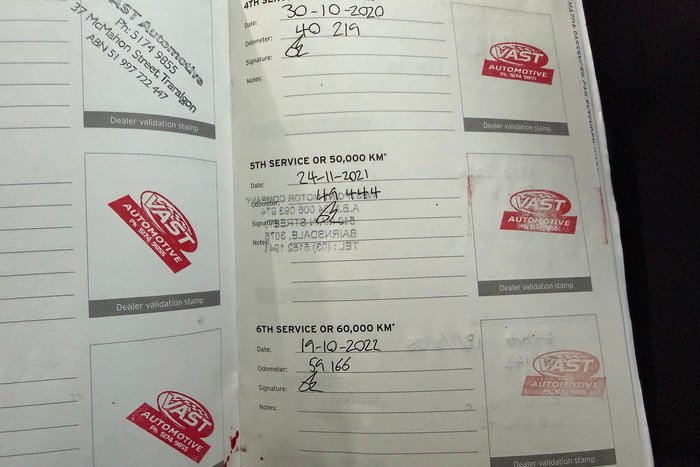 VAST Automotive
Ph: 5174 9855
37 McMahon Street, Traralgon
ABN 51 997 722 447
Dealer validation stamp
VAST
AUTOMOTIVE
Ph 5174 9855
Dealer validation stamp
VAST
AUTOMOTIVE
Ph 5174 9855
4TH SERVICE OR
Date: 30-10-2020
Odometer: 40 219
Signature:
Notes:
VAST
AUTOMOTIVE
Ph 5174 9855
Dealer validation stamp
5TH SERVICE OR 50,000 KM*
Date: 24-11-2021
Odometer: 49 444
Signature:
Notes:
MOTOR COMPANY
A.B.N. 006 093 974
MAIN STREET
BAIRNSDALE. 3875
TEL: (03) 5152 1941
VAST
AUTOMOTIVE
Ph 5174 9855
Dealer validation stamp
6TH SERVICE OR 60,000 KM*
Date: 19-10-2022
Odometer: 59 166
Signature:
Notes:
VAST
AUTOMOTIVE
Ph 5174 9855
Dealer validation stamp